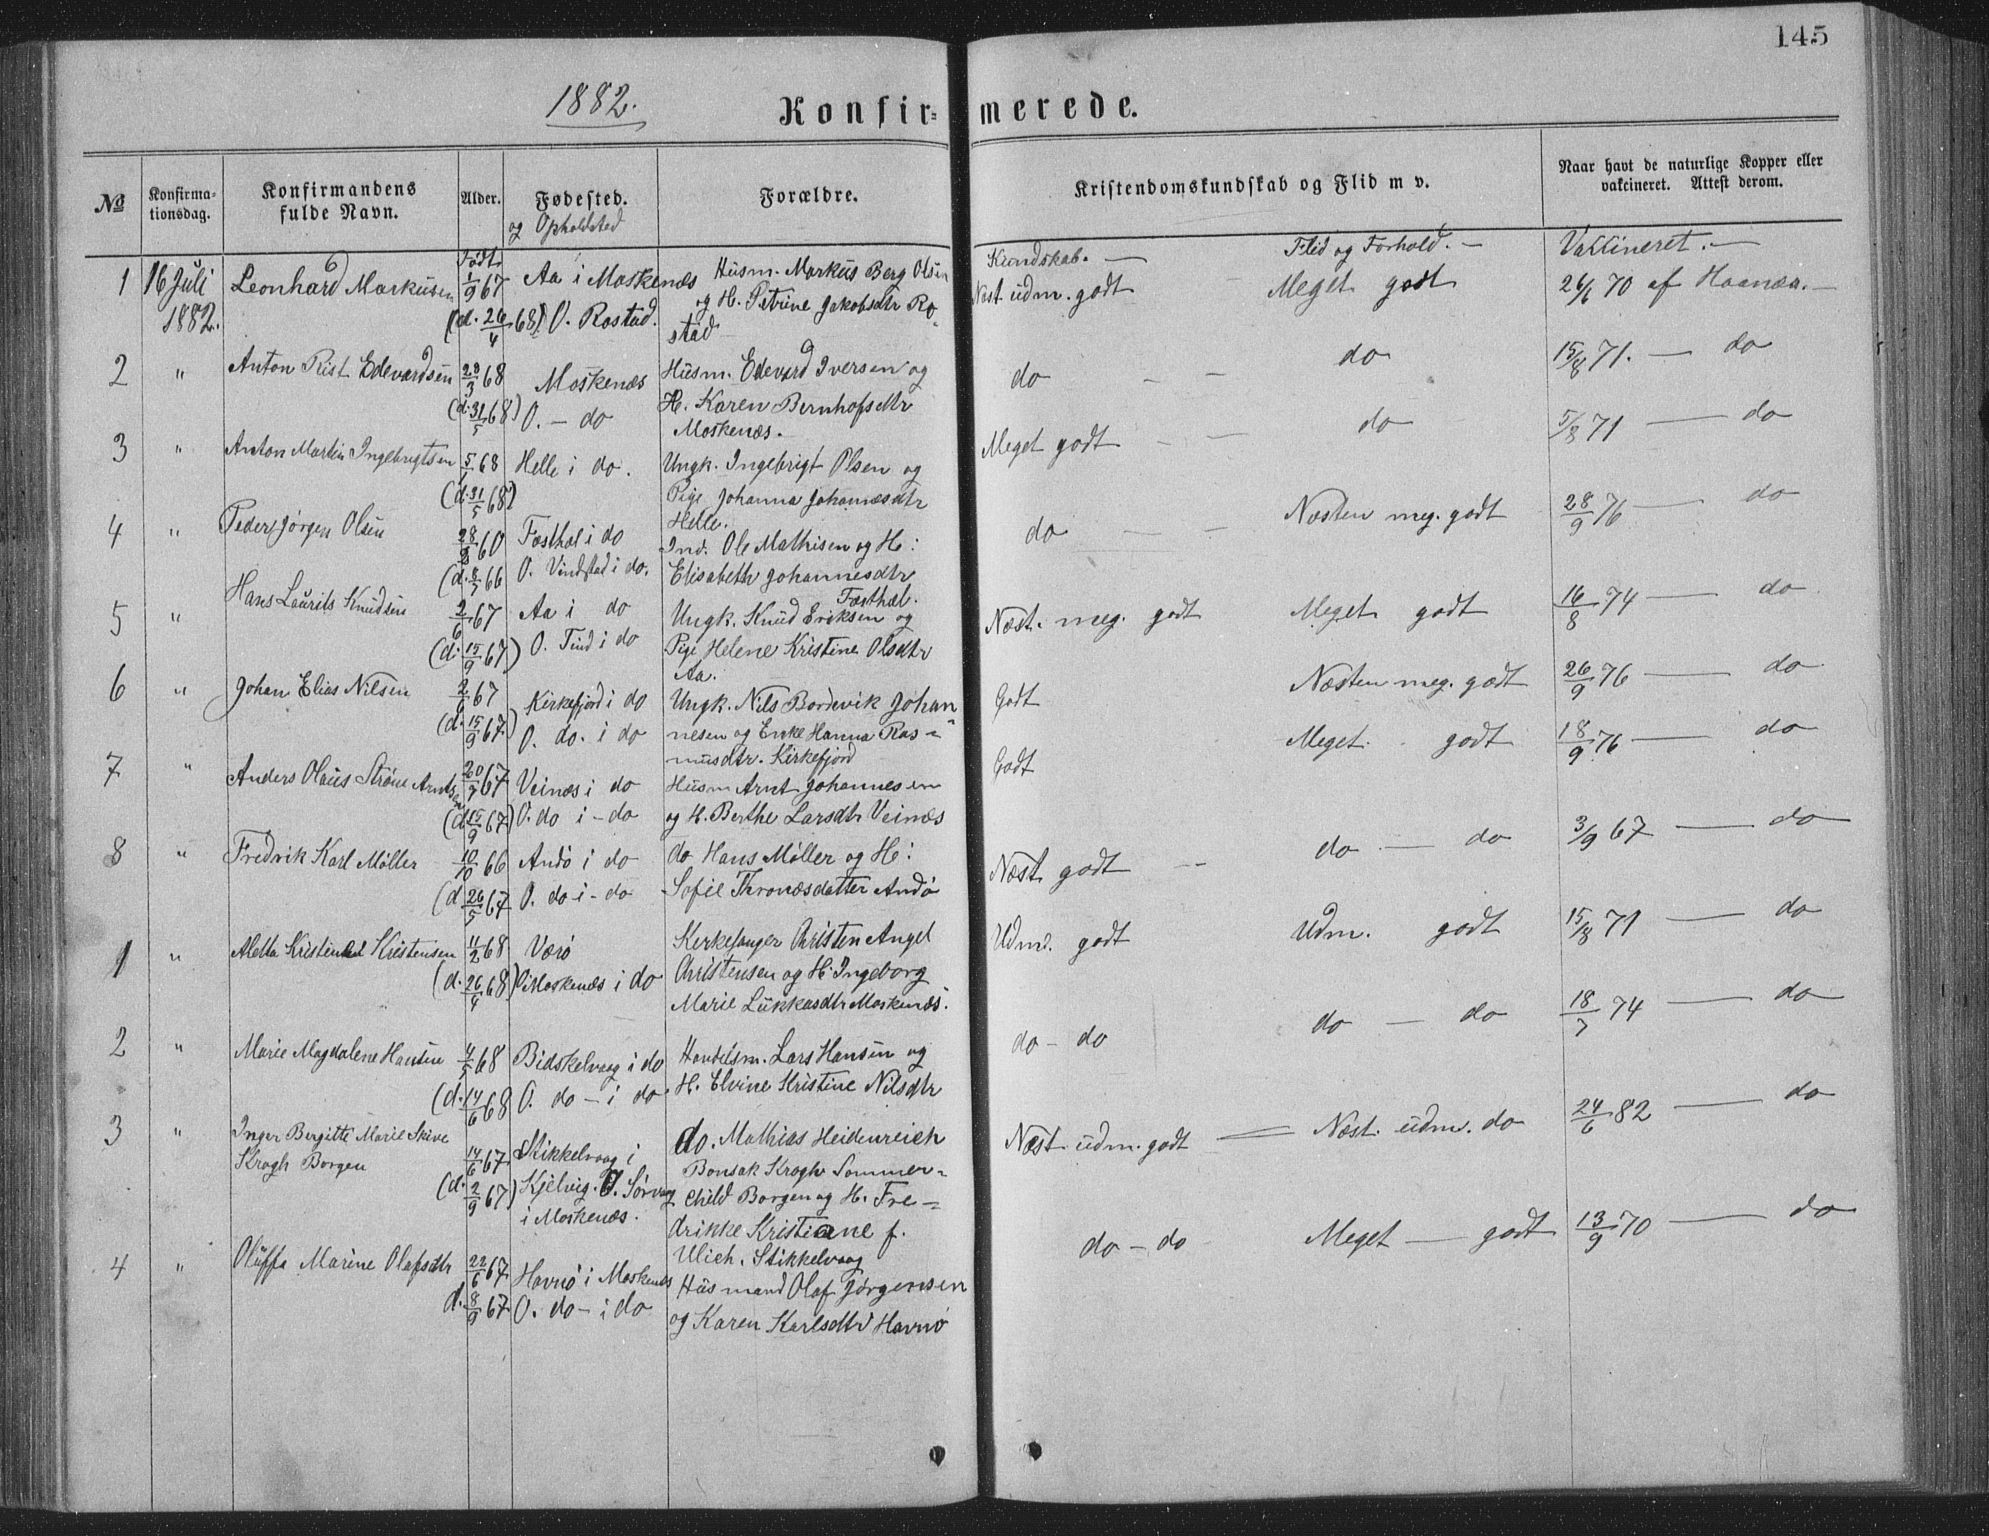 145
1882.
Konfir=merede.
No
Konfirma-
tionsdag.
Konfirmandens
fulde Navn.
Alder.
Fødested.
og Opholdsted
Forældre.
Kristendomskundskab og Flid m v.
Naar havt de naturlige Kopper eller
vakcineret. Attest derom.
Født
Kundskab. —
Flid og Forhold. —
Vakcineret. —
1 16 Juli Leonhard Markusen 1/9 67 Aa i Moskenæs Husm. Markus Berg Olsen Næst. udm. godt — Meget godt 26/6 70 af Haanæs. —
1882. (d. 26/4 68) O. Rostad. og H. Petrine Jakobsdtr Ro-
stad
2 " Anton Rist Edevardsen 29/3 68 Moskenæs Husm. Edevard Iversen og do — — do 15/8 71. — do
(d. 31/5 68) O. — do H. Karen Bernhofsdtr
Moskenæs.
3 " Anton Martin Ingebrigtsen 5/1 68 Helle i do. Ungk. Ingebrigt Olsen og Meget godt — — do 5/8 71 — do
(d. 31/5 68) Pige Johanna Johanæsdtr
Helle.
4 " Peder Jørgen Olsen 28/8 60 Fæsthæl i do Ind. Ole Mathisen og H: do — — Næsten meg. godt 28/9 76 — do
(d. 8/7 66 O. Vindstad i do. Elisabeth Johannesdtr
Fæsthæl.
5 " Hans Laurits Knudsen 2/6 67 Aa i do Ungk. Knud Eriksen og Næst. meg. godt Meget godt 16/8 74 — do
(d. 15/9 67) O. Tind i do Pige Helene Kristine Olsdtr
Aa.
6 " Johan Elias Nilsen 2/6 67 Kirkefjord i do Ungk. Nils Bordevik Johan= Godt Næsten meg. godt 26/9 76 — do
(d. 15/9 67) O. do. i do nesen og Enke Hanna Ras=
musdtr. Kirkefjord
7 " Anders Olaus Strøm Arntsen 20/7 67 Veinæs i do Husm Arnt Johannesen Godt Meget godt 18/9 76 — do
(d. 15/9 67) O. do i — do og H. Berthe Larsdtr Veinæs
8 " Fredrik Karl Møller 10/10 66 Andø i do do Hans Møller og H: Næst godt — do — do 3/9 67 — do
(d 26/5 67 O. do — i — do Sofie Thronæsdatter Andø
1 " Aletta Kristensen 11/2 68 Værø Kerkesanger Christen Angel Udmd. godt Udm. godt 15/8 71 — do
(d. 26/4 68) O Moskenæs i do Christensen og H. Ingeborg
Marie Lukkasdtr Moskenæs.
2 " Marie Magdalene Hansen 4/5 68 Bidskelvaag i do Handelsm. Lars Hansen og do — do do — do 18/7 74 — do
(d. 14/6 68 O. do — i do H. Elvine Kristine Nilsdtr
3 " Inger Bergitte Marie Skive 14/6 67 Stikkelvaag i do. Mathias Heidenreich Næst udm. godt — Næst. udm. do 24/6 82 — do
Krogh Borgen (d. 2/9 67) Kjelvig. O. Sørvaag Bonsak Krogh Sommer=
i Moskenæs. child Borgen og H. Fre=
drikke Kristiane f.
Ulich. Stikkelvaag
4 " Oluffa Marine Olafsdtr 22/6 67 Havnø i Moskenæs Husmand Olaf Jørgensen do — do Meget — godt 13/9 70 — do
d. 8/9 67 O. do — i do og Karen Karlsdtr Havnø